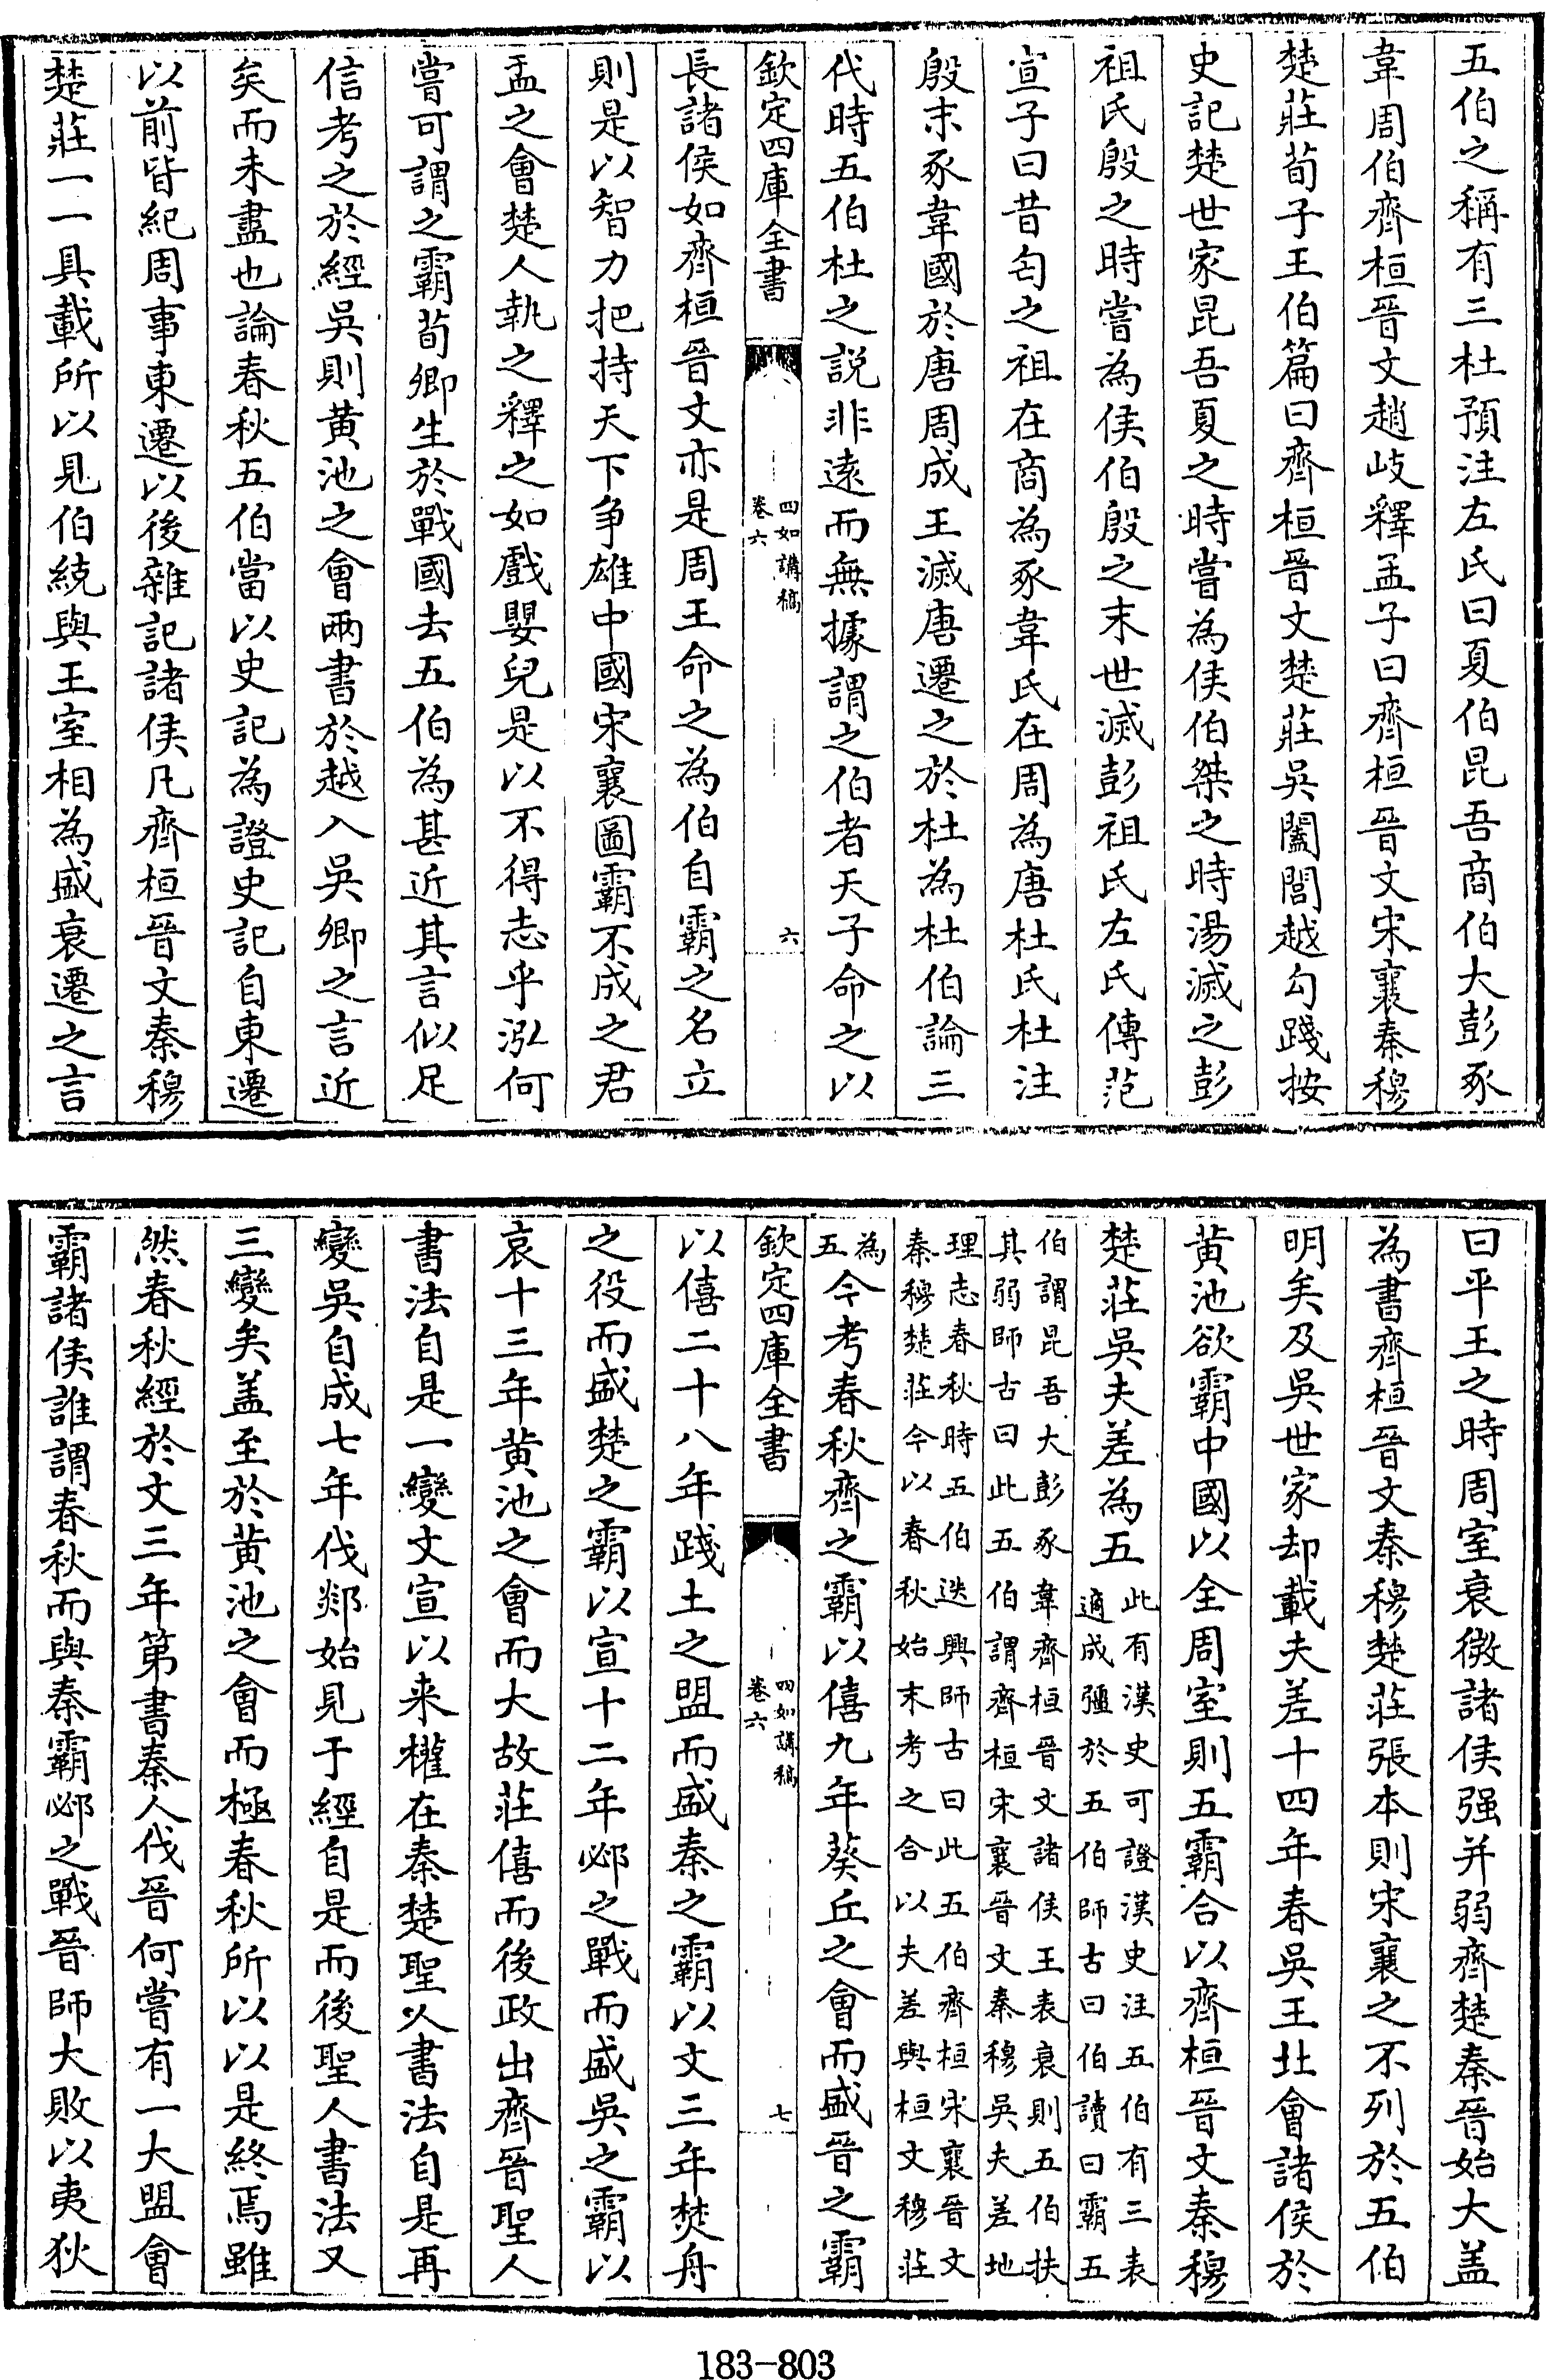 五伯之稱有三杜預注左氏曰夏伯昆吾商伯大彭豕
韋周伯齊桓晉文趙岐釋孟子曰齊桓晉文宋襄秦穆
楚莊荀子王伯篇曰齊桓晉文楚莊吳闔閭越勾踐按
史記楚世家昆吾夏之時嘗為侯伯桀之時湯滅之彭
祖氏殷之時嘗為侯伯殷之末世滅彭祖氏左氏傳范
宣子曰昔匄之祖在商為豕韋氏在周為唐杜氏杜注
殷末豕韋國於唐周成王滅唐遷之於杜為杜伯論三
代時五伯杜之説非遠而無據謂之伯者天子命之以
欽定四庫全書
四如講稿
卷六
六
長諸侯如齊桓晉文亦是周王命之為伯自霸之名立
則是以智力把持天下争雄中國宋襄圖霸不成之君
盂之會楚人執之釋之如戲嬰兒是以不得志乎泓何
嘗可謂之霸荀卿生於戰國去五伯為甚近其言似足
信考之於經吳則黄池之會兩書於越入吳卿之言近
矣而未盡也論春秋五伯當以史記為證史記自東遷
以前皆紀周事東遷以後雜記諸侯凡齊桓晉文秦穆
楚莊一一具載所以見伯統與王室相為盛衰遷之言
曰平王之時周室衰微諸侯强并弱齊楚秦晉始大盖
為書齊桓晉文秦穆楚莊張本則宋襄之不列於五伯
明矣及吳世家却載夫差十四年春吳王北會諸侯於
黄池欲霸中國以全周室則五霸合以齊桓晉文秦穆
楚莊吳夫差為五此有漢史可證漢史注五伯有三表
適成彊於五伯師古曰伯讀曰霸五
伯謂昆吾大彭豕韋齊桓晉文諸侯王表衰則五伯扶
其弱師古曰此五伯謂齊桓宋襄晉文秦穆吳夫差地
理志春秋時五伯迭興師古曰此五伯齊桓宋襄晉文
秦穆楚莊今以春秋始末考之合以夫差與桓文穆莊
為
五今考春秋齊之霸以僖九年葵丘之會而盛晉之霸
欽定四庫全書
四如講稿
卷六
七
以僖二十八年踐土之盟而盛秦之霸以文三年焚舟
之役而盛楚之霸以宣十二年邲之戰而盛吳之霸以
哀十三年黄池之會而大故莊僖而後政出齊晉聖人
書法自是一變文宣以来權在秦楚聖人書法自是再
變吳自成七年伐郯始見于經自是而後聖人書法又
三變矣盖至於黄池之會而極春秋所以以是終焉雖
然春秋經於文三年第書秦人伐晉何嘗有一大盟會
霸諸侯誰謂春秋而與秦霸邲之戰晉師大敗以夷狄
183-803